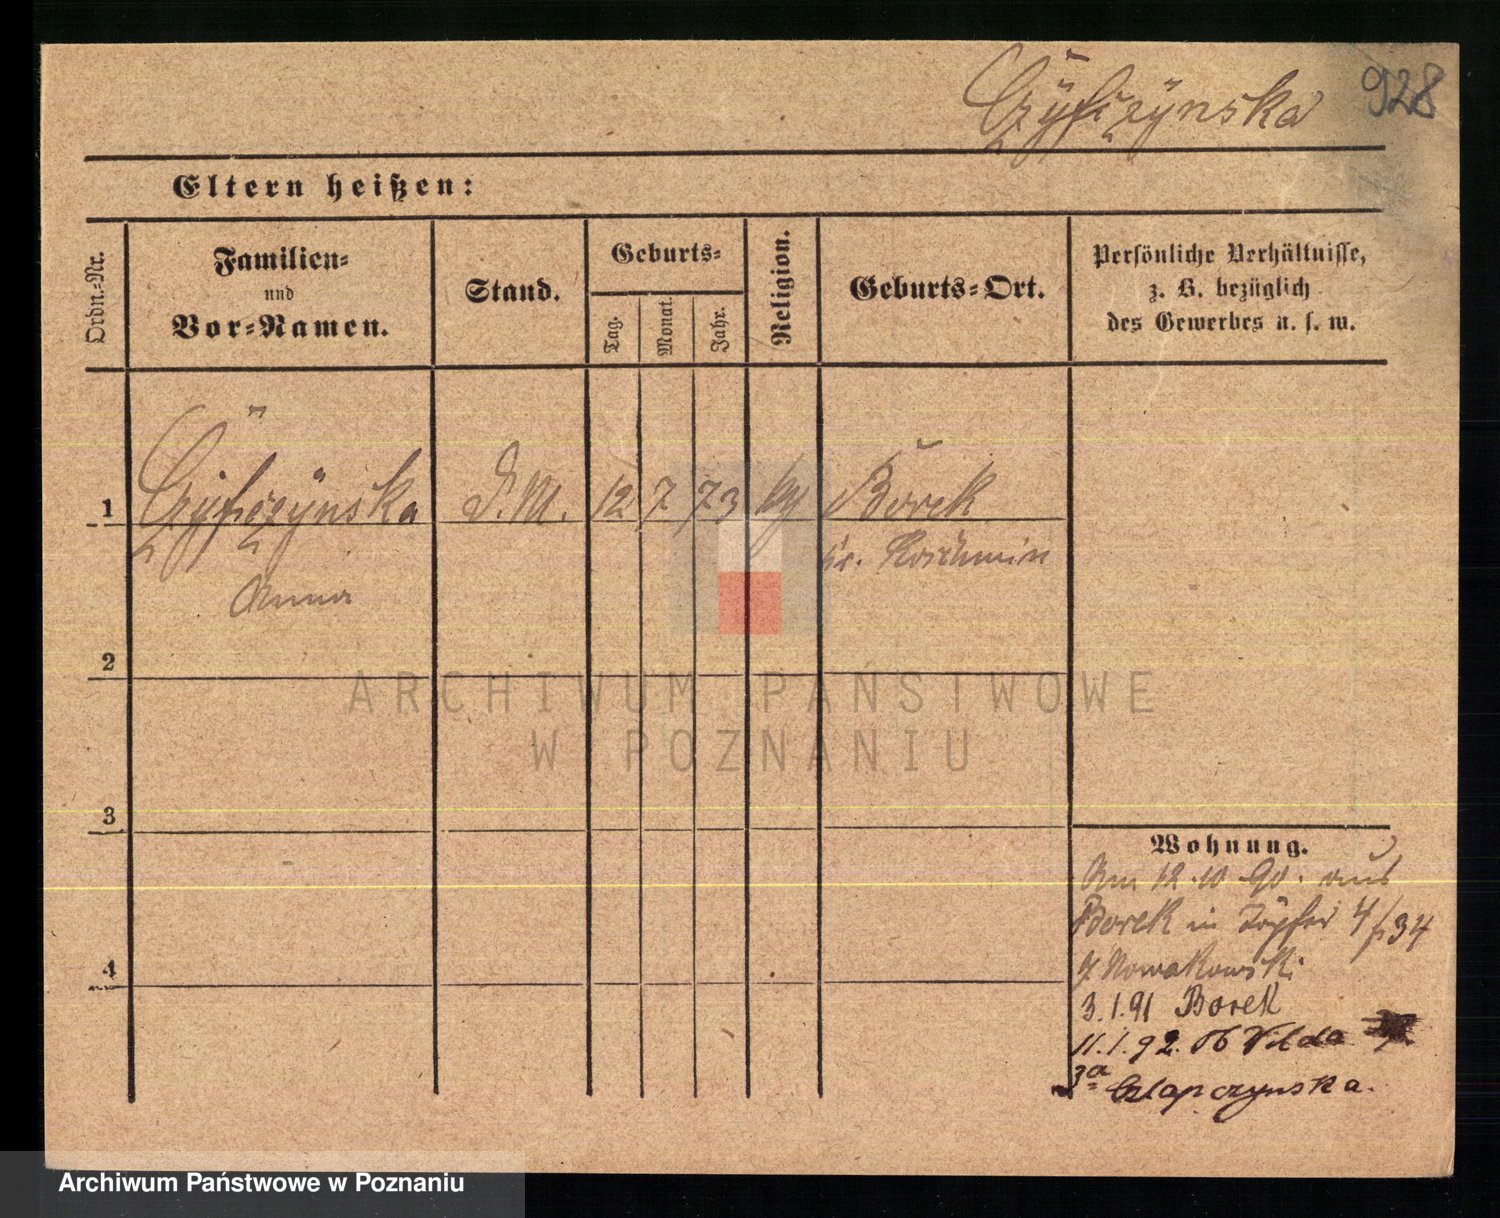 928
Eltern heißen:
Ordn.-Nr.
Familien-
und
Vor-Namen.
Stand.
Geburts-
Tag.
Monat.
Jahr.
Religion.
Geburts-Ort.
Persönliche Verhältnisse,
z. B. bezüglich
des Gewerbes u. s. w.
1
D. M. 12 7 73 Borek
Kr. Koschmin
Anna
2
3
4
Wohnung.
Am 12.10.90. aus
Borek in 4/34
Nowakowski
3.1.91 Borek
11.1.92. Ob Vilda
3a Człapczynska.
ARCHIWUM PAŃSTWOWE
W POZNANIU
Archiwum Państwowe w Poznaniu